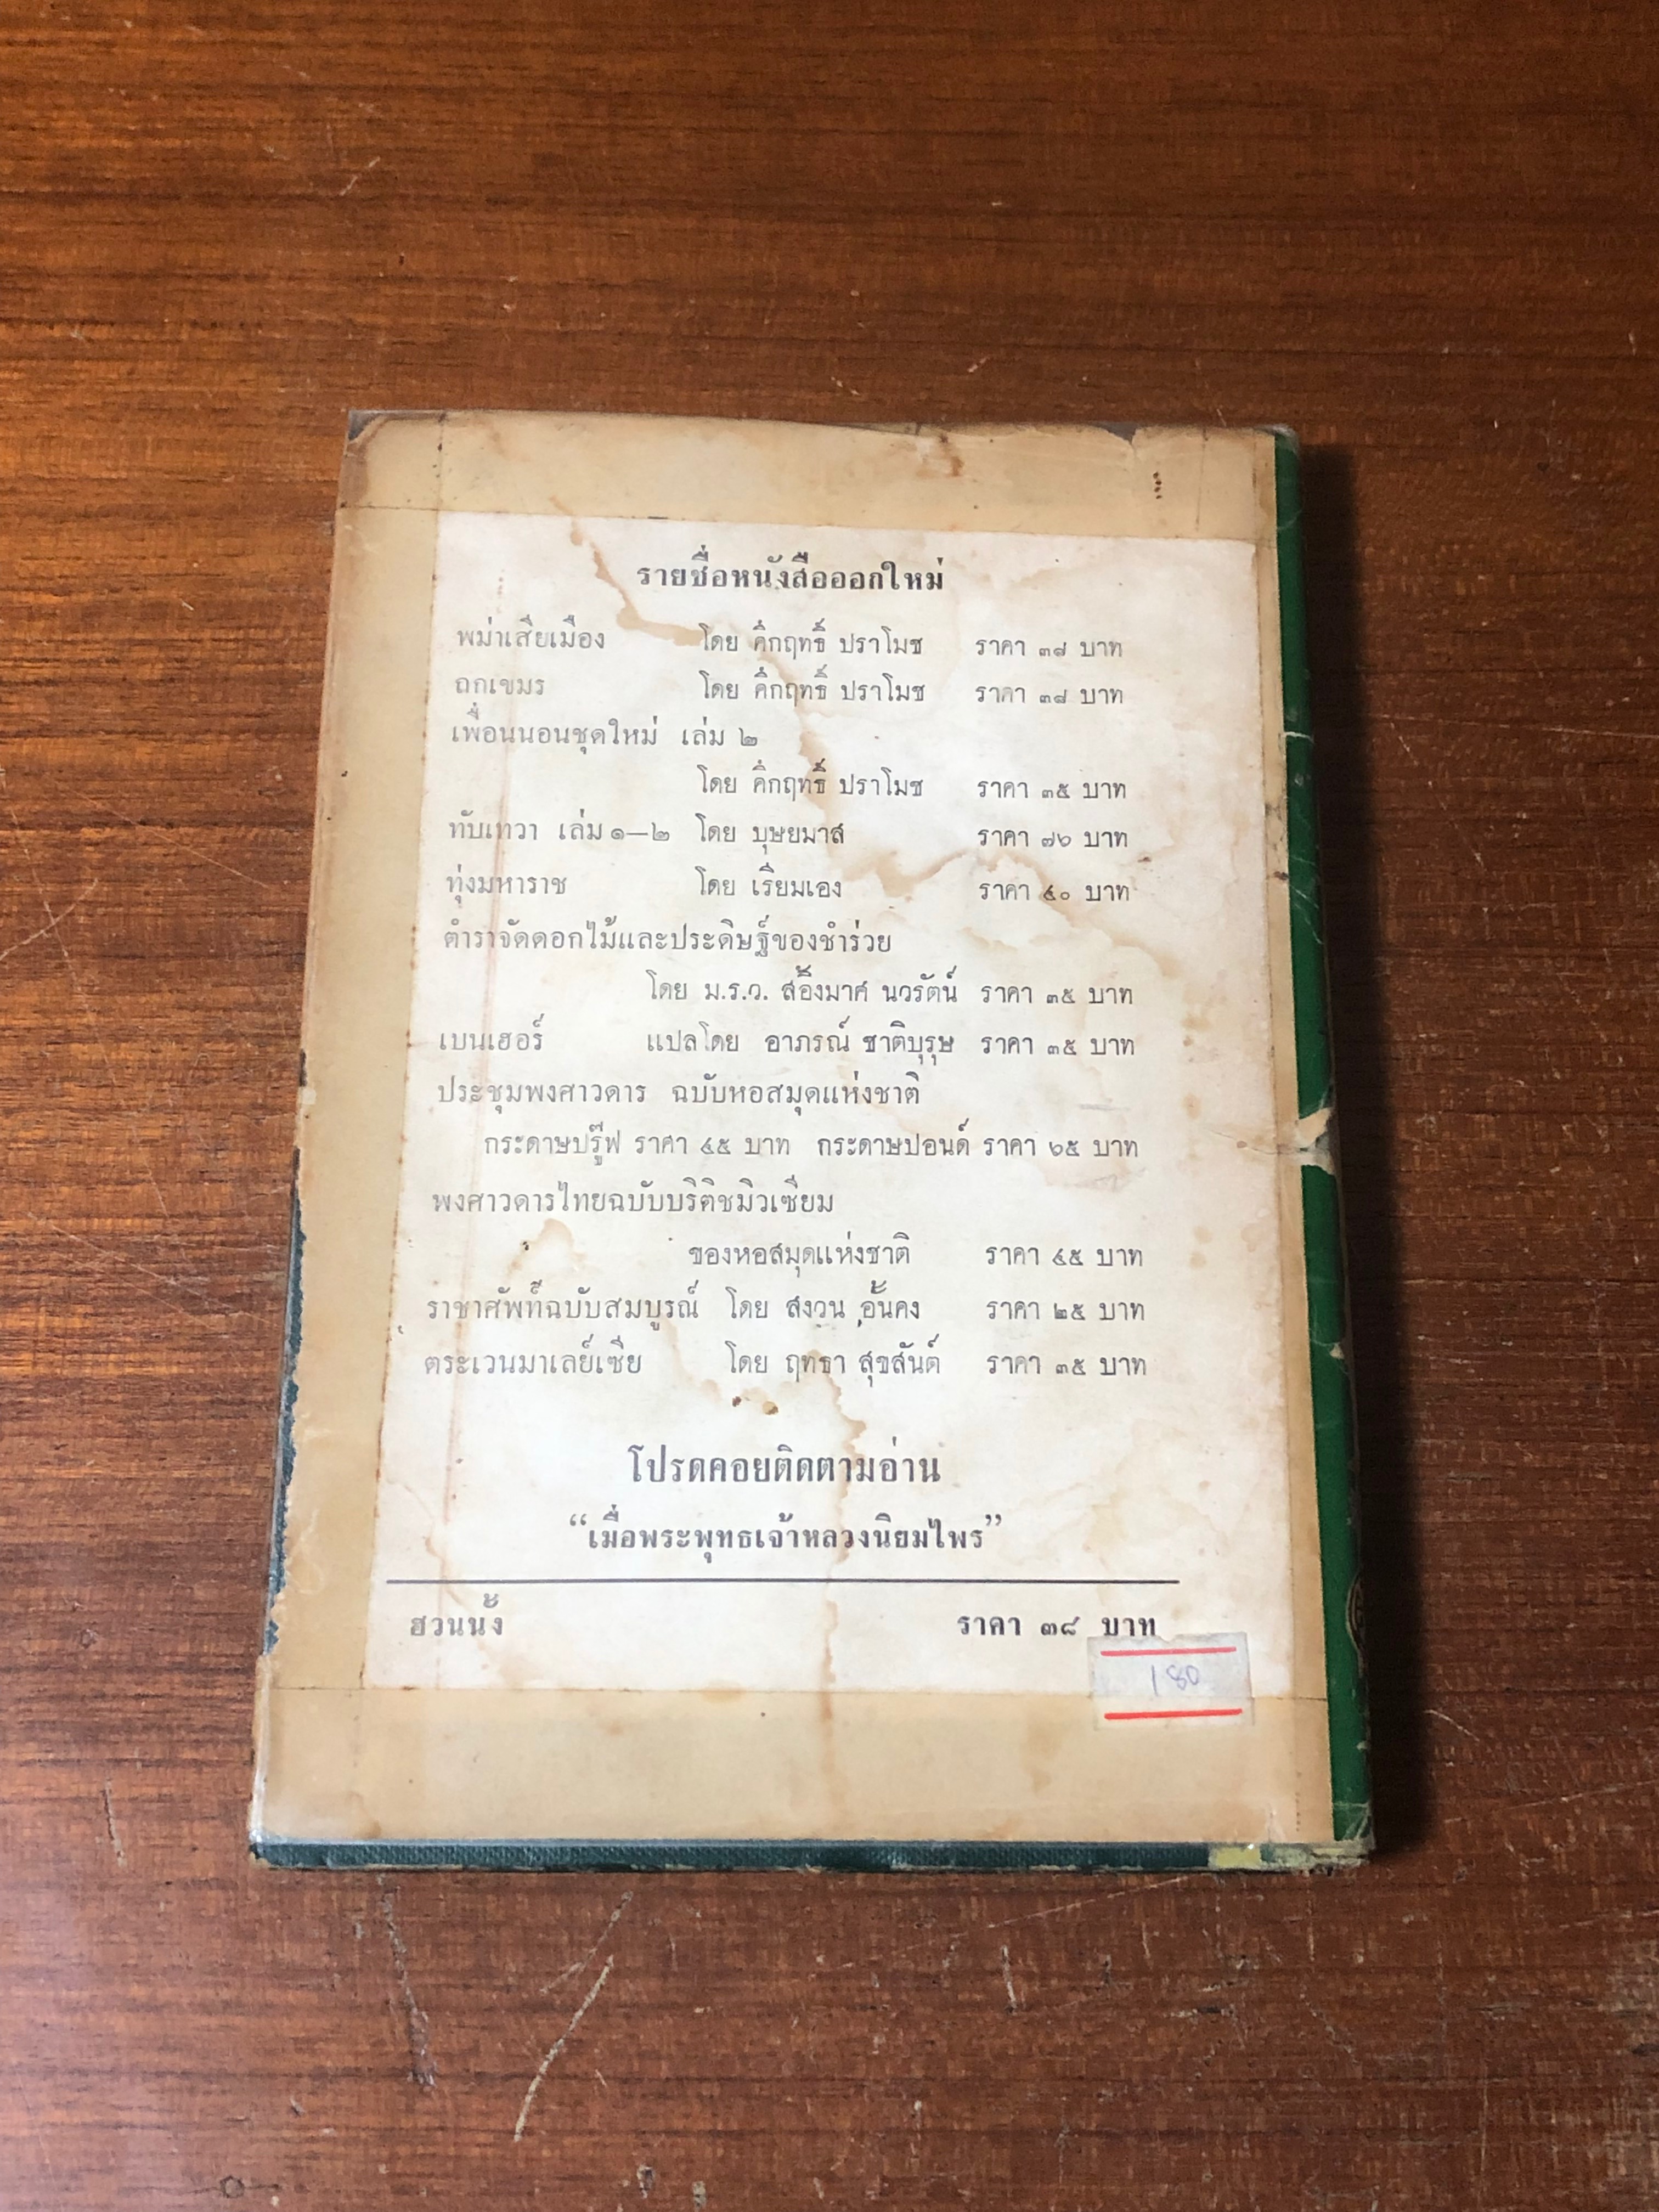 รายชื่อหนังสือออกใหม่
พม่าเสียเมือง โดย คึกฤทธิ์ ปราโมช ราคา ๓๘ บาท
ถกเขมร โดย คึกฤทธิ์ ปราโมช ราคา ๓๘ บาท
เพื่อนนอนชุดใหม่ เล่ม ๒
โดย คึกฤทธิ์ ปราโมช ราคา ๓๕ บาท
ทับเทวา เล่ม ๑—๒ โดย บุษยมาส ราคา ๗๖ บาท
ทุ่งมหาราช โดย เรียมเอง ราคา ๔๐ บาท
ตำราจัดดอกไม้และประดิษฐ์ของชำร่วย
โดย ม.ร.ว. สอิ้งมาศ นวรัตน์ ราคา ๓๕ บาท
เบนเฮอร์ แปลโดย อาภรณ์ ชาติบุรุษ ราคา ๓๕ บาท
ประชุมพงศาวดาร ฉบับหอสมุดแห่งชาติ
กระดาษปรู๊ฟ ราคา ๔๕ บาท กระดาษปอนด์ ราคา ๖๕ บาท
พงศาวดารไทยฉบับบริติชมิวเซียม
ของหอสมุดแห่งชาติ ราคา ๔๕ บาท
ราชาศัพท์ฉบับสมบูรณ์ โดย สงวน อั้นคง ราคา ๒๕ บาท
ตระเวนมาเลย์เซีย โดย ฤทธา สุขสันต์ ราคา ๓๕ บาท
โปรดคอยติดตามอ่าน
“เมื่อพระพุทธเจ้าหลวงนิยมไพร”
ฮวนนั้ง ราคา ๓๘ บาท
180